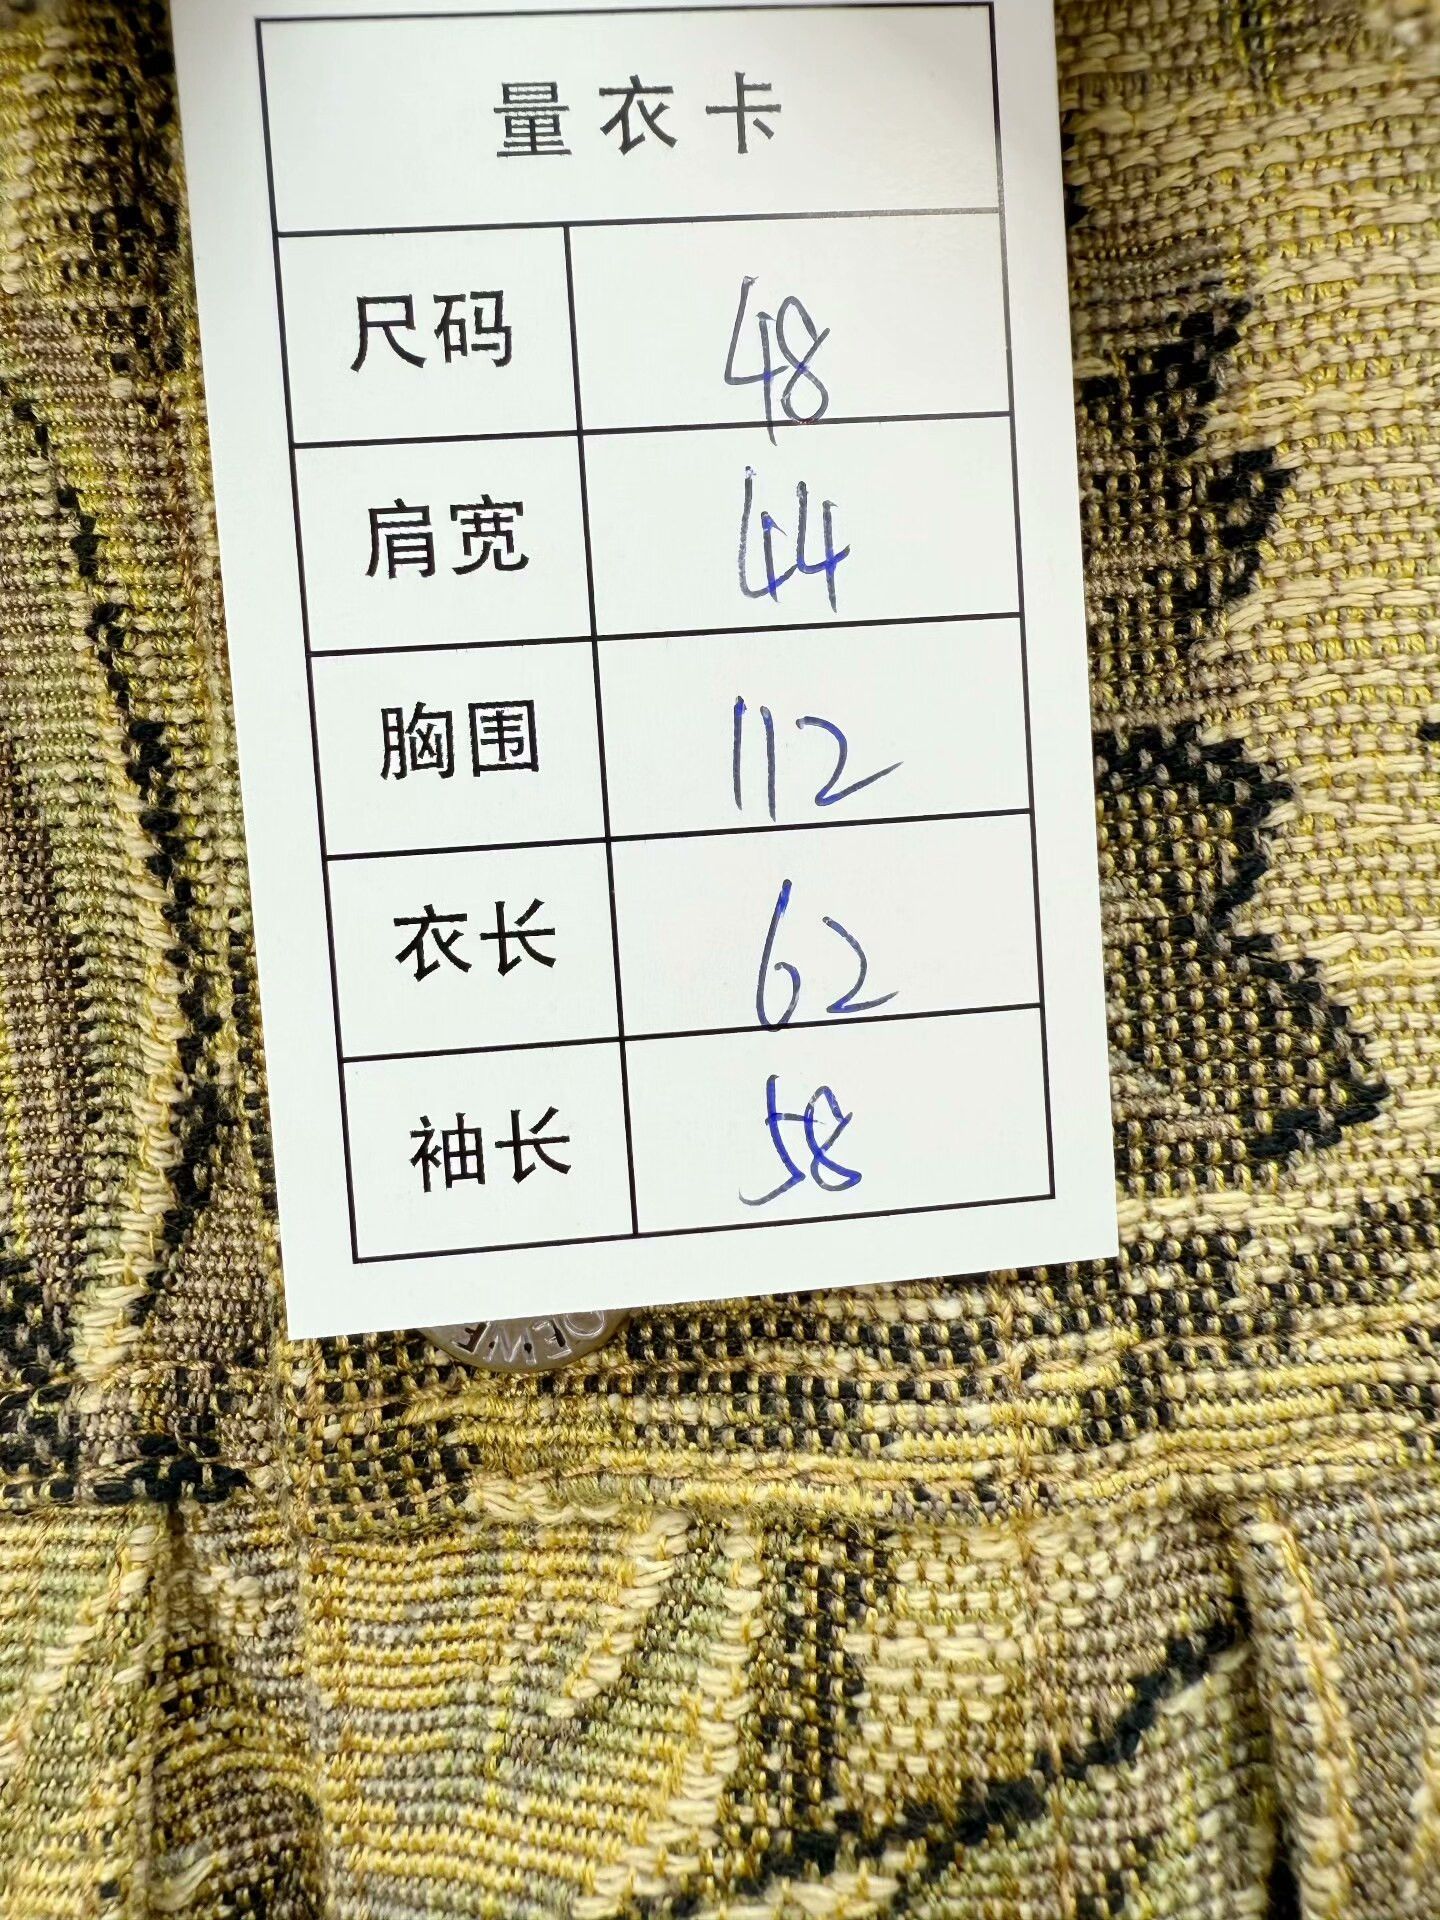 量衣卡
尺码 48
肩宽 44
胸围 112
衣长 62
袖长 58